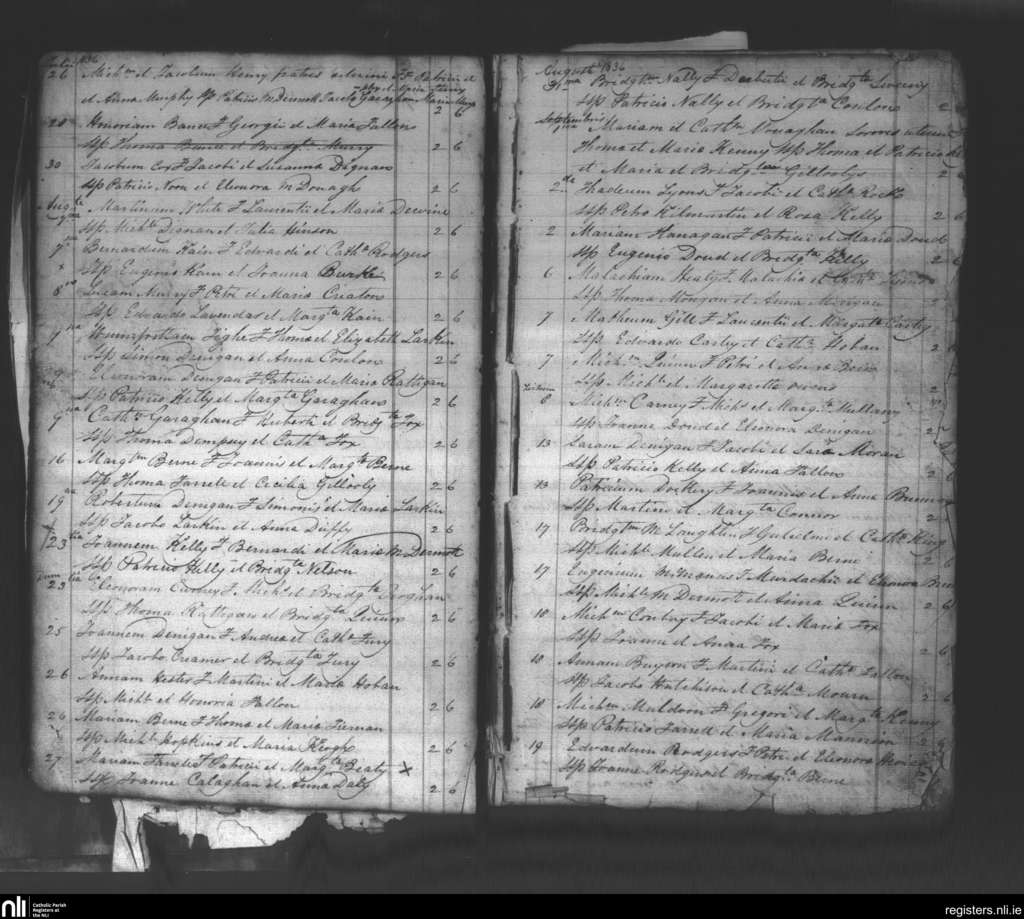 Julii 1836
26 Michm et Jacobum Henry fratres uterini F Patricii et
et Anna Murphy Sp Patricio McDermott Jacobo Garaghan Maria
2 6
28 Honoriam Bane F Georgii et Maria Fallons
Ssp Thoma Bane et Bridgta Murry 2 6
30 Jacobum Cox F Jacobi et Susanna Dignan
Ssp Patricio Noon et Elenora McDonagh 2 6
Augta Martinum White F Laurentii et Maria Dervine
Ssp Michl Dignan et Julia Hinson 2 6
7 Bernardum Kain F Edwardi et Catha Rodgers
x Ssp Eugenio Kain et Joanna Burke 2 6
8 Lucam Murry F Petri et Maria Creaton
Ssp Edvardo Lavendar et Margta Kain 2 6
9 Winnifridam Tighe F Thoma et Elizabeth Larkin
Ssp Simon Denigan et Anna Conlon 2 6
Elenoram Denigan F Patricii et Maria Rattigan
Ssp Patricio Kelly et Margta Garaghan 2 6
9 Cathm Garaghan F Huberti et Bridgta Fox
Ssp Thoma Dempsey et Catha Fox 2 6
16 Margtm Berne F Joannis et Margta Berne
Ssp Thoma Farrell et Cecilia Gillooly 2 6
19 Robertum Denigan F Simonis et Maria Larkin
Ssp Jacobo Larkin et Anna Duffy 2 6
23 Joannem Kelly F Bernardi et Maria McDermott
Ssp Patricio Kelly et Bridgta Nelson 2 6
23 Elenoram Carney F Michl et Bridgta Boghan
Ssp Thoma Rattigan et Bridgta Quinn 2 6
25 Joannem Denigan F Andrea et Catha Fury
Ssp Jacobo Creamer et Bridgta Fury 2 6
26 Annam Hester F Martini et Maria Hoban
Ssp Michl et Honoria Fallon 2 6
26 Mariam Berne F Thoma et Maria Tiernan
Ssp Michl Hopkins et Maria Keogh 2 6
27 Mariam Farrell F Patricii et Margta Beaty x
Ssp Joanne Calaghan et Anna Daly 2 6
Augusti 1836
31ma Bridgtm Nally F Darbertii et Bridgta Sweeny
Ssp Patricio Nally et Bridgta Conlon 2
Septembris
1ma Mariam et Cathm Monaghan Sorores uterini F
Thoma et Maria Kenny Ssp Thoma et Patricio
et Maria et Bridgtaa Gilloolys 2
2da Thadeum Lyons F Jacobi et Catha Rock
Ssp Petro Kilmartin et Rosa Kelly 2 6
2 Mariam Hanagan F Patricii et Maria Doud
Ssp Eugenio Doud et Bridgta Kelly 2 6
6 Malachiam Healy F Malachia et Catha Lyons
Ssp Thoma Mongan et Anna Morgan 2
7 Matheum Gill F Laurentii et Margatta Carty
Ssp Edvardo Carly et Catha Hoban 2
7 Michm Quinn F Petri et Anna Brice
Ssp Michl et Margaretta Owens 2
8 Michm Carney F Michl et Margta Mullany
Ssp Joanne Doud et Elenora Denigan 2
13 Saram Denigan F Jacobi et Sara Moran
Ssp Patricio Kelly et Anna Fallon 2 6
13 Patricium Dockery F Joannis et Anna
Ssp Martini et Margta Connor 2
17 Bridgtm McLoughlin F Gulielmi et Catha King
Ssp Michl Mullen et Maria Berne 2 6
17 Eugenium McManus F Murdachii et Elenora
Ssp Michl McDermott et Anna Quinn 2 6
18 Michm Conboy F Jacobi et Maria Fox
Ssp Joanne et Anna Fox 2 6
18 Annam Bryson F Martini et Catha Fallon
Ssp Jacobo Hutchison et Catha Moran 2 6
18 Michm Muldoon F Gregorii et Margta Kenny
Ssp Patricio Farrell et Maria Mannion 2
19 Edvardum Rodgers F Petri et Elenora
Ssp Joanne Rodgers et Bridgta Berne
nli Catholic Parish
Registers at
the NLI
registers.nli.ie